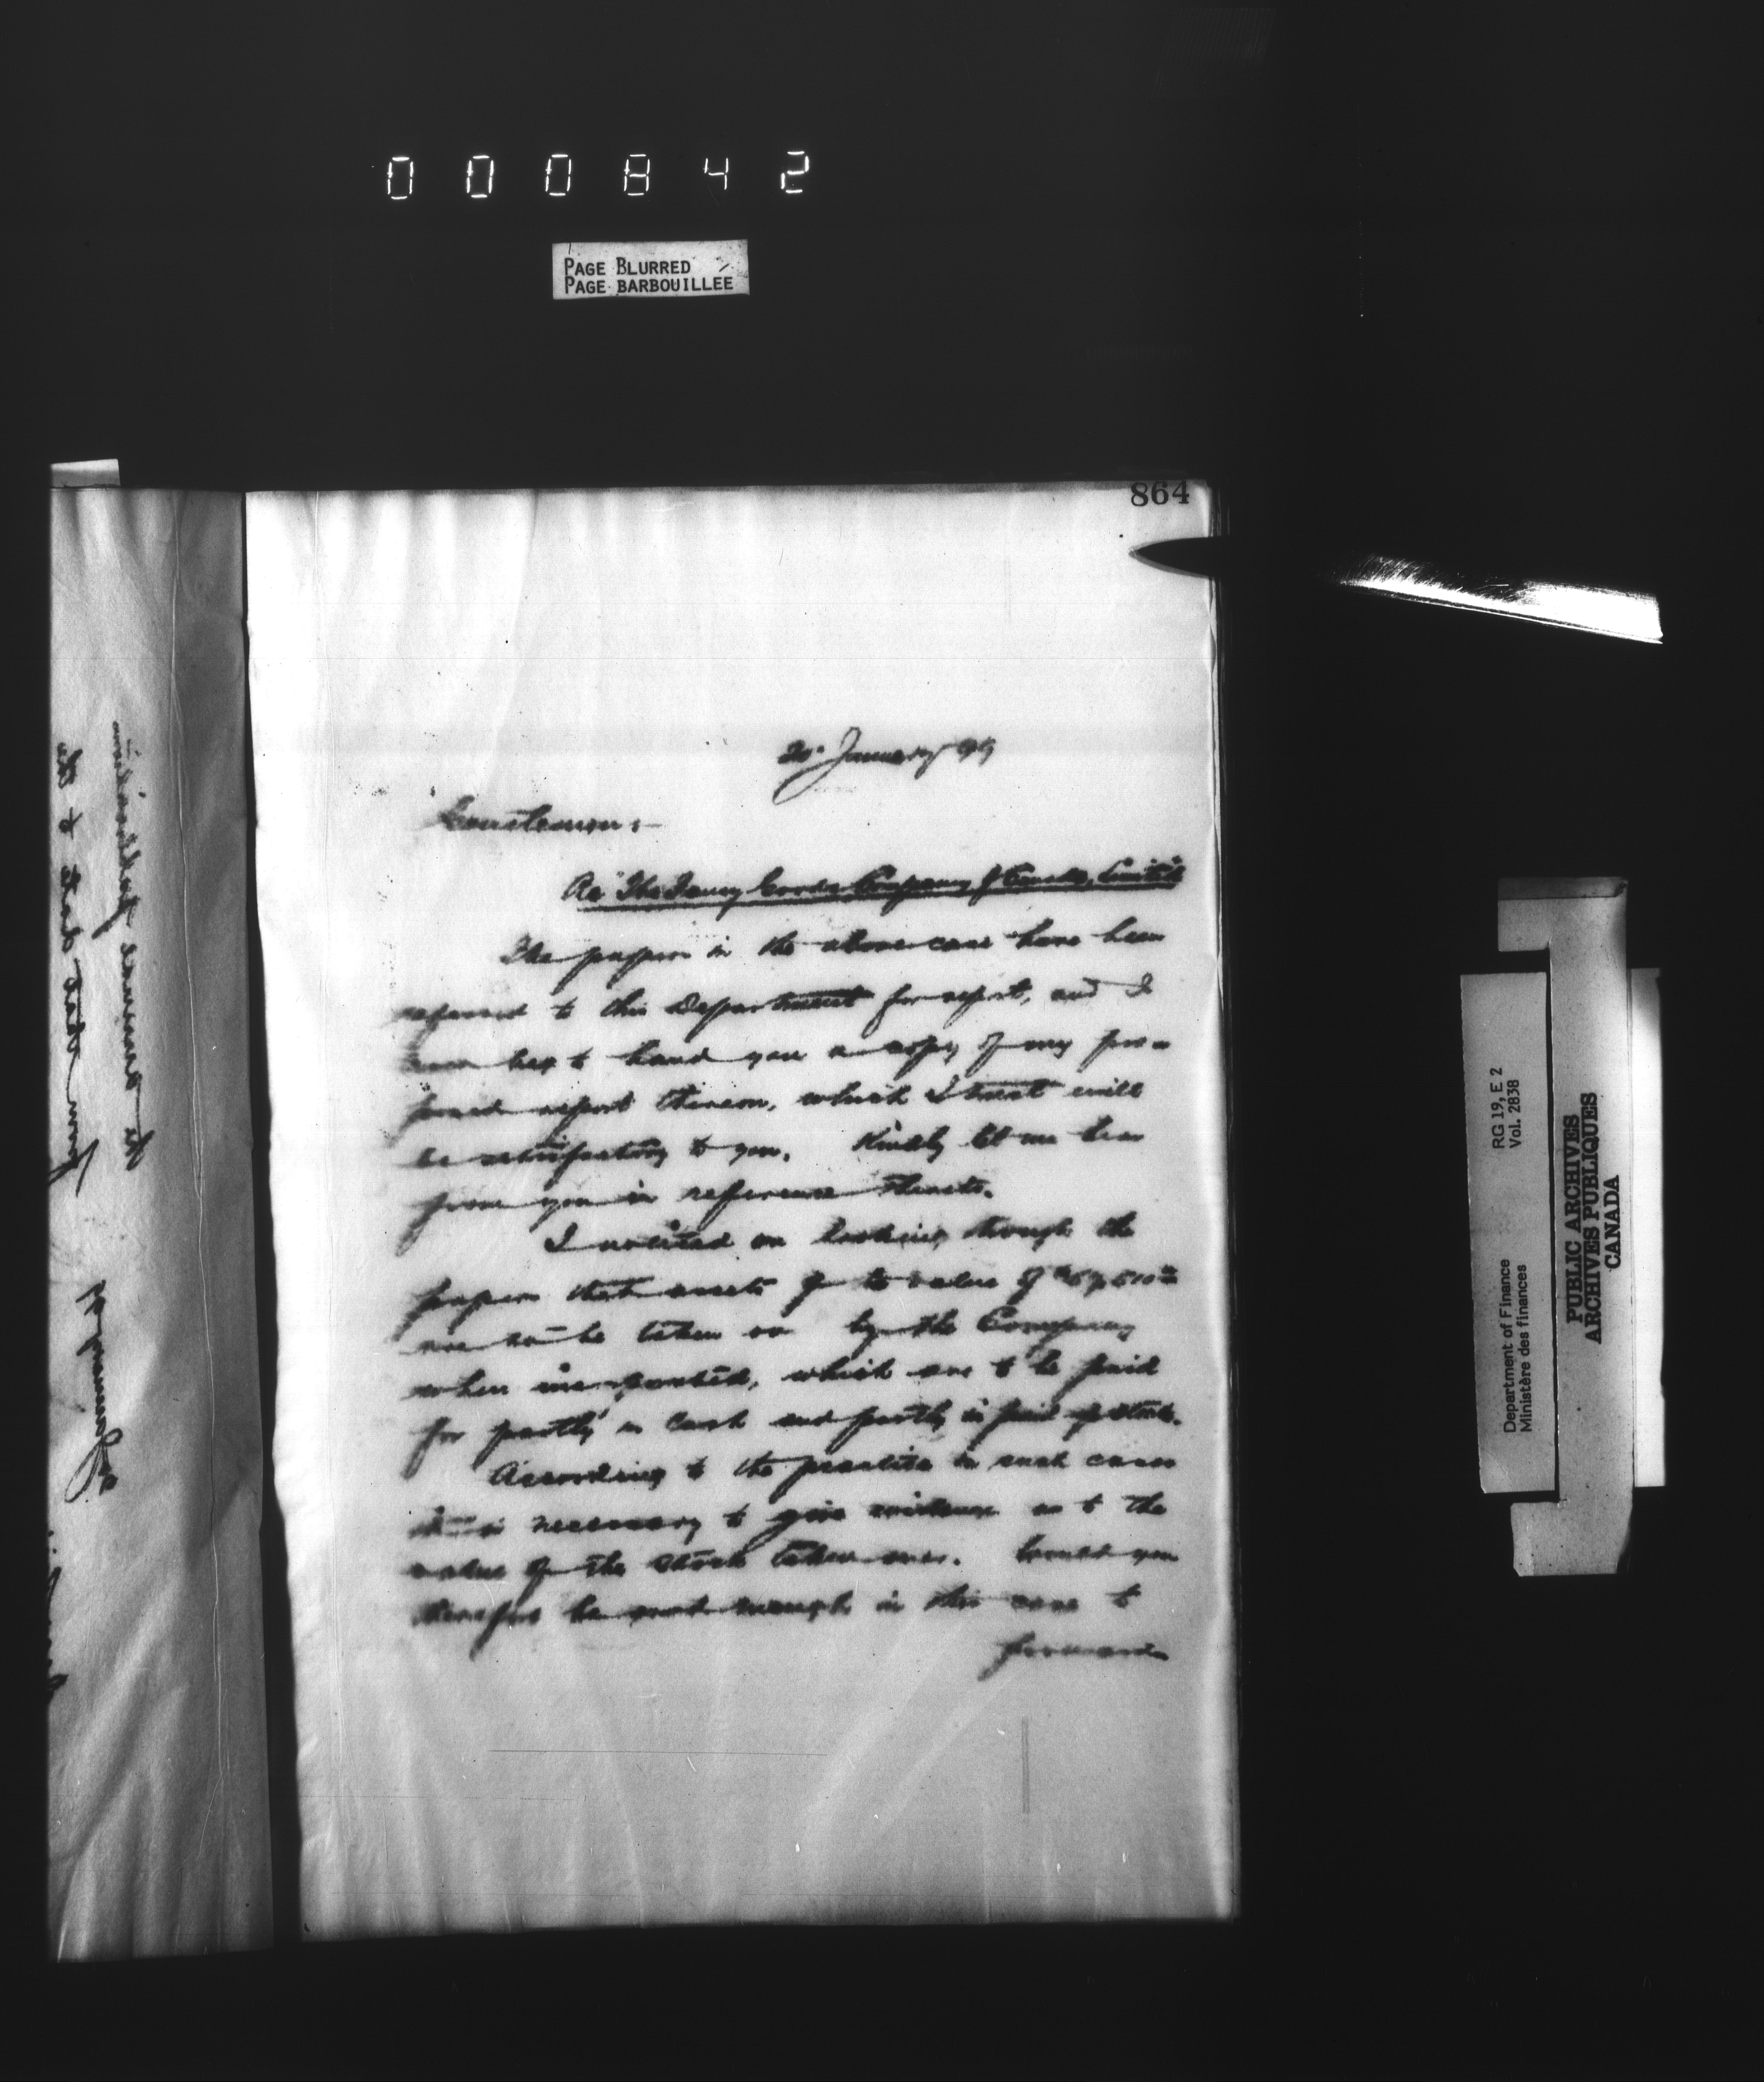 000842
PAGE BLURRED
PAGE BARBOUILLÉE
864
January 99
Gentlemen:-
Re "The Fancy Goods Company of Canada, Limited
The papers in the above case have been
referred to this Department for report, and I
beg to hand you a copy of my pro=
posed report thereon, which I trust will
be satisfactory to you. Kindly let me hear
from you in reference thereto.
I noticed on looking through the
papers that assets of the value of
are to be taken over by the Company
when incorporated, which are to be paid
for partly in cash and partly in paid up stock.
According to the practice in such cases
it is necessary to give evidence as to the
value of the stock taken over. Would you
therefore be good enough in this case to
forward
RG 19, E 2
Vol. 2838
Department of Finance
Ministère des finances
PUBLIC ARCHIVES
ARCHIVES PUBLIQUES
CANADA